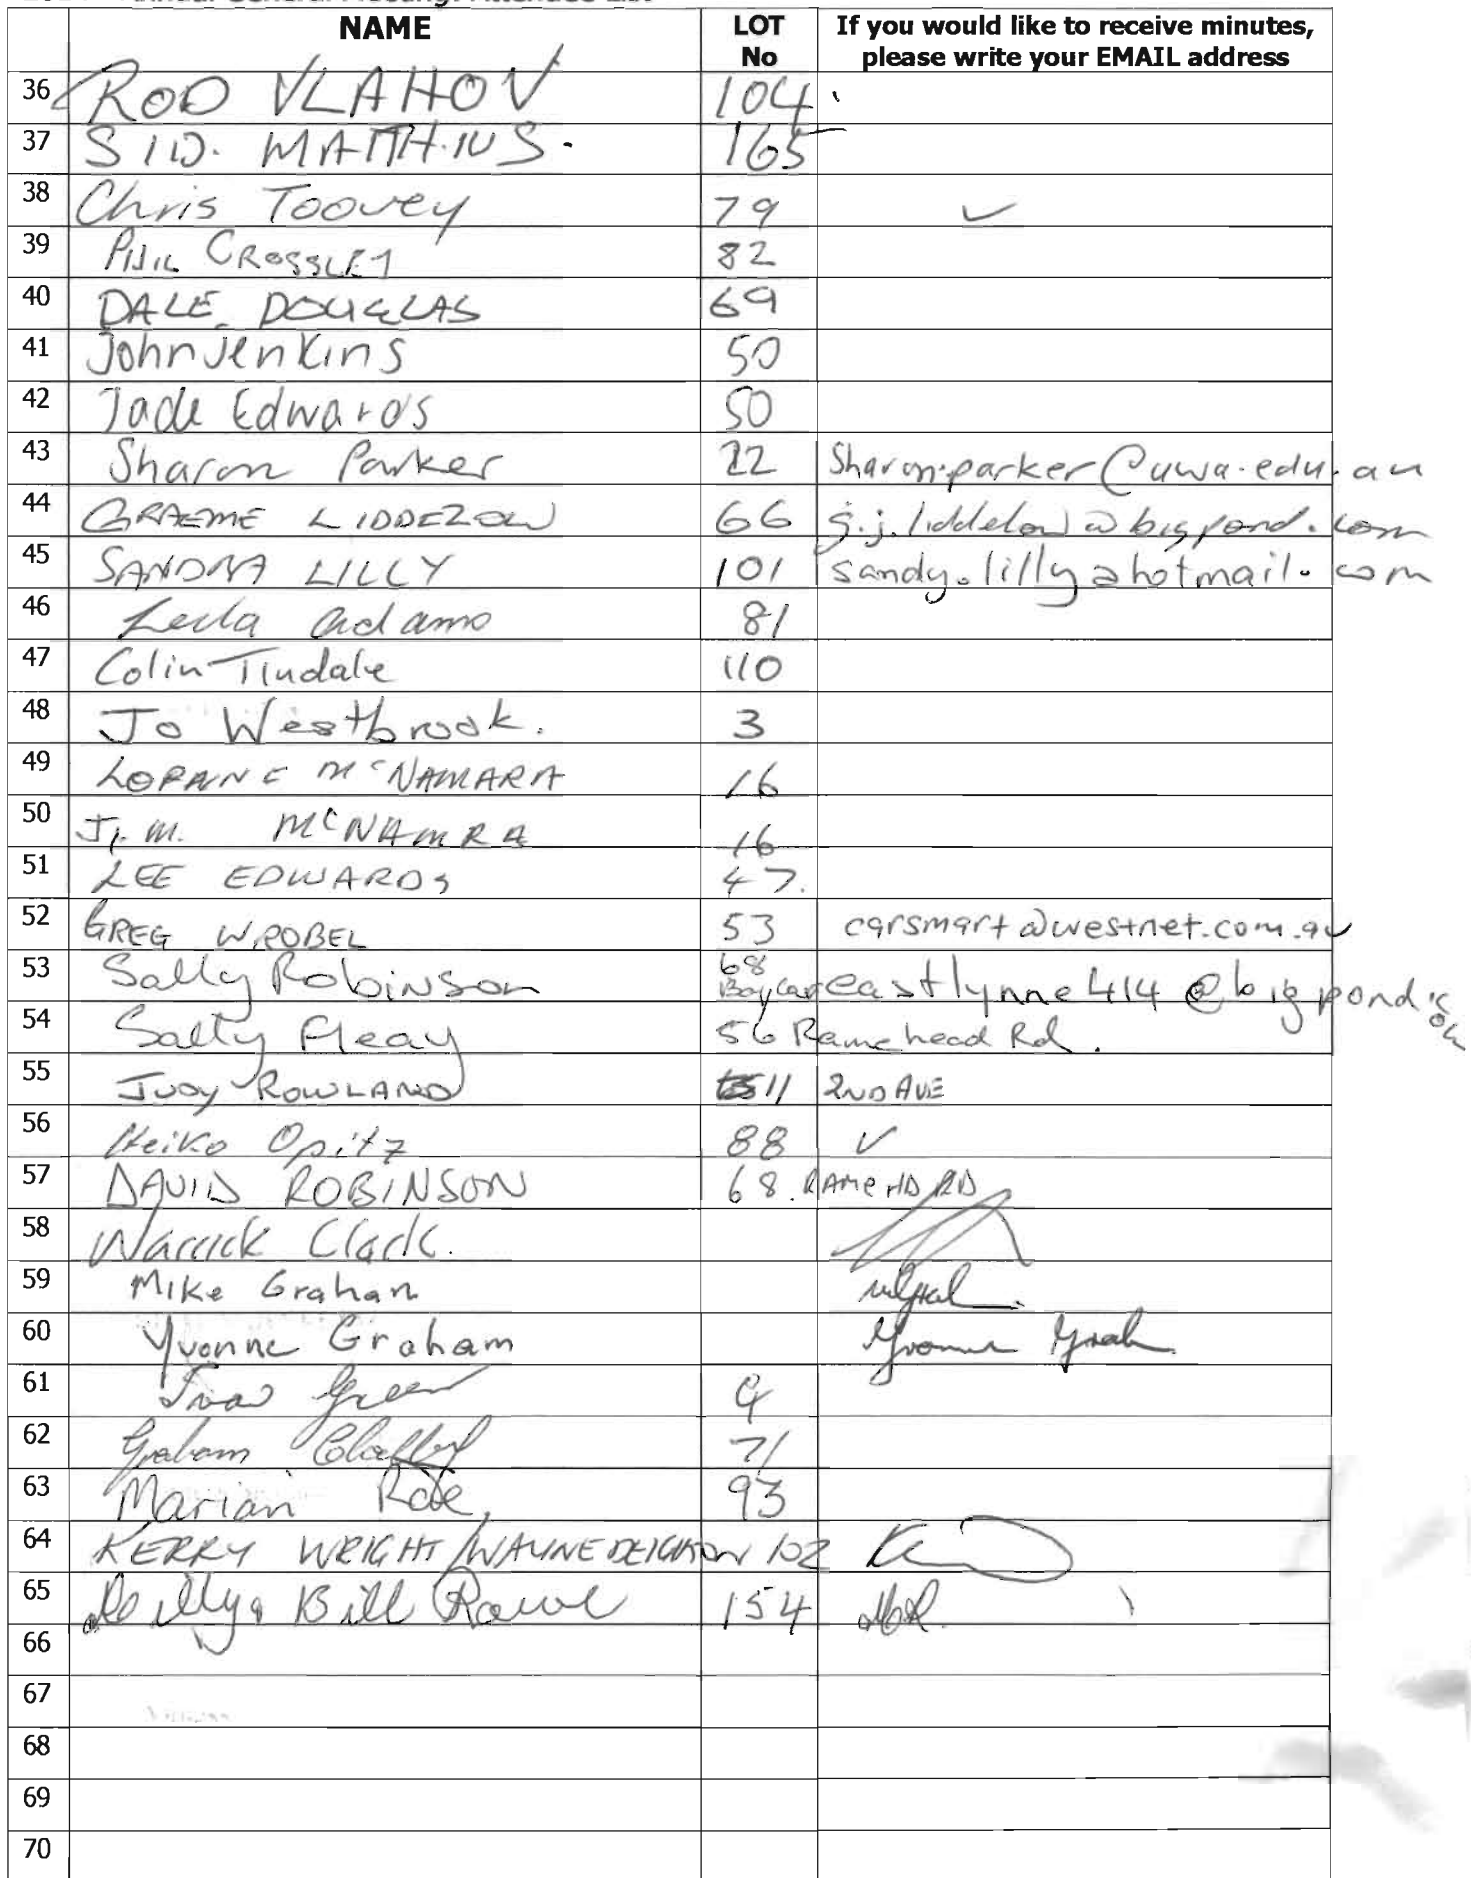 Annual General Meeting: Attendee List
NAME LOT No If you would like to receive minutes, please write your EMAIL address
36 ROD VLAHOV 104
37 SID. MATTHIUS. 165
38 Chris Toovey 79 ✓
39 PHIL CROSSLEY 82
40 DALE DOUGLAS 69
41 John Jenkins 50
42 Jade Edwards 50
43 Sharon Parker 22 Sharon.parker@uwa.edu.au
44 GRAEME LIDDELOW 66 g.j.liddelow@bigpond.com
45 SANDRA LILLY 101 sandy.lilly@hotmail.com
46 Leila Adams 81
47 Colin Tindale 110
48 Jo Westbrook. 3
49 LORAINE McNAMARA 16
50 JIM. McNAMRA 16
51 LEE EDWARDS 47.
52 GREG WROBEL 53 carsmart@westnet.com.au
53 Sally Robinson 68 eastlynne414@bigpond.com
54 Sally Fleay 56 Ramehead Rd.
55 JUDY ROWLAND 11 2ND AVE
56 Heiko Opitz 88 ✓
57 DAVID ROBINSON 68. RAME HD RD
58 Warrick Clark.
59 Mike Graham
60 Yvonne Graham Yvonne Graham
61 Green
62 Graham 71
63 Marian Rae, 93
64 KERRY WRIGHT/WAYNE DEIGHTON 102
65 Bill Rowe 154
66
67
68
69
70